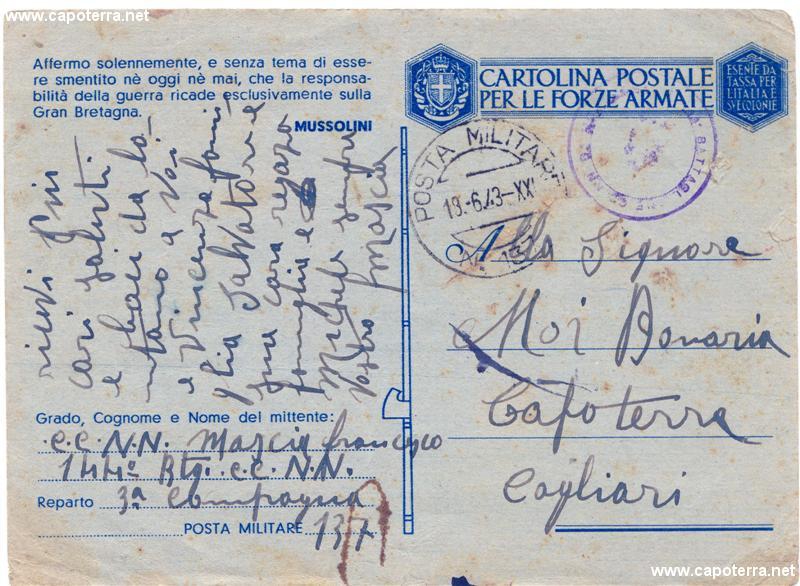 www.capoterra.net
Affermo solennemente, e senza tema di esse-
re smentito nè oggi nè mai, che la responsa-
bilità della guerra ricade esclusivamente sulla
Gran Bretagna.
MUSSOLINI
ricevi i più
cari saluti
e baci da lo-
ntano a voi
e Vincenza fami
glia Salvatore e
sua cara
famiglia e
Michele sempre
Vostro Marcia
Grado, Cognome e Nome del mittente:
C.C.N.N. Marcia Francesco
144° Btg. C.C.N.N.
Reparto 3ª Compagna
POSTA MILITARE 137
CARTOLINA POSTALE
PER LE FORZE ARMATE
ESENTE DA
TASSA PER
L'ITALIA E
SUE COLONIE
POSTA MILITARE
18-6.43-XXI
N. 137
BATTAGL
Alla Signore
Moi Bonaria
Capoterra
Cagliari
www.capoterra.net